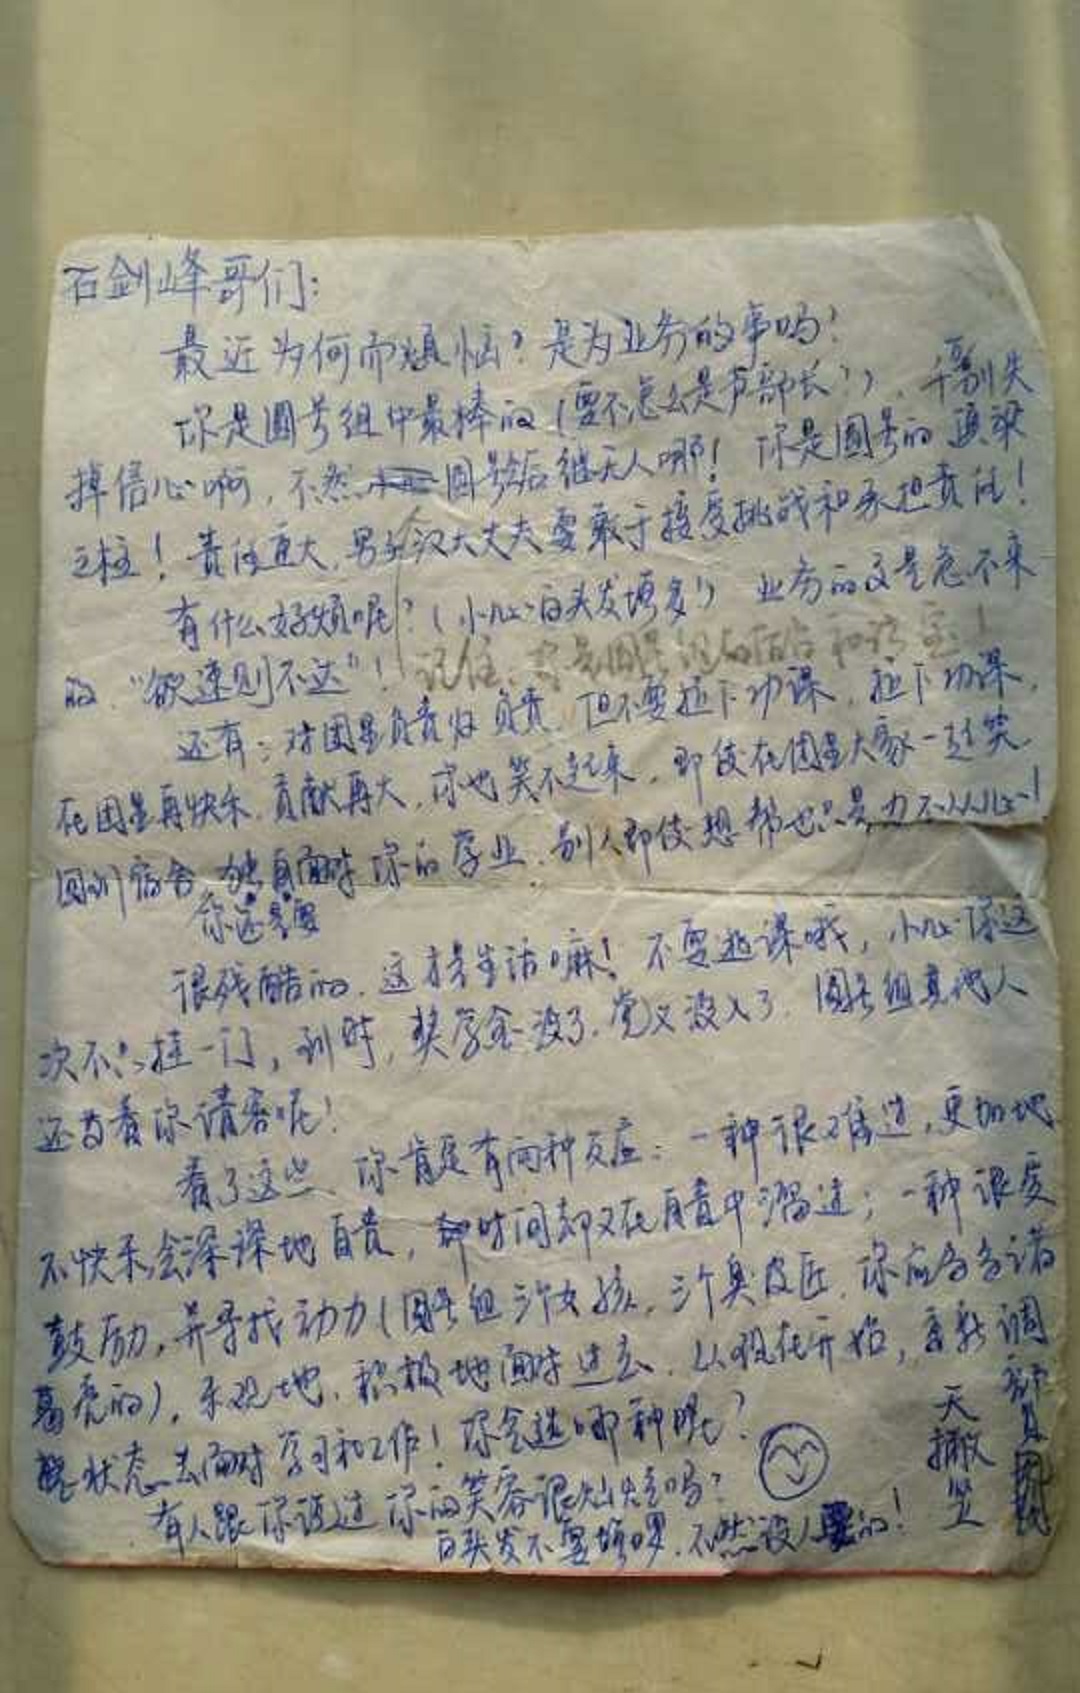 石剑峰哥们:
最近为何而烦恼?是为业务的事吗?
你是圆号组中最棒的(要不怎么是声部长?),千万别失
掉信心啊,不然圆号后继无人哪!你是圆号的顶梁
之柱!责任重大,男子汉大丈夫要敢于接受挑战和承担责任!
有什么好烦呢?(小心白头发增多!)业务的这是急不来
的,"欲速则不达"!记住,你是圆号组的
还有:对团里负责归负责,但不要拉下功课,拉下功课,
在团里再快乐,贡献再大,你也笑不起来,即使在团里大家一起笑,
回到宿舍你还是要独自面对你的学业,别人即使想帮也只是力不从心!
很残酷的,这才是生活嘛!不要逃课哦,小心你这
次不只挂一门,到时,奖学金没了,党又没入了,圆号组其他人
还等着你请客呢!
看了这些,你肯定有两种反应:一种很难过,更加地
不快乐,会深深地自责,时间却又在自责中溜过;一种很受
鼓励,并寻找动力(圆号组三个女孩,三个臭皮匠,你应为诸
葛亮的),乐观地,积极地面对过去,从现在开始,重新调
整状态去面对学习和工作!你会选哪种呢?
有人跟你说过你的笑容很灿烂吗?
白头发不要增啰,不然没人要的!
天